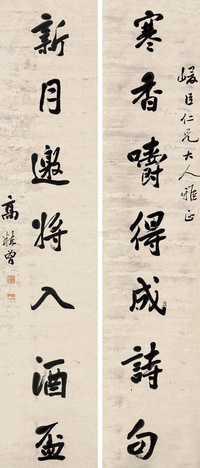 臣仁兄大人雅正
寒香嚼得成詩句
新月邀將入酒盃
高曾